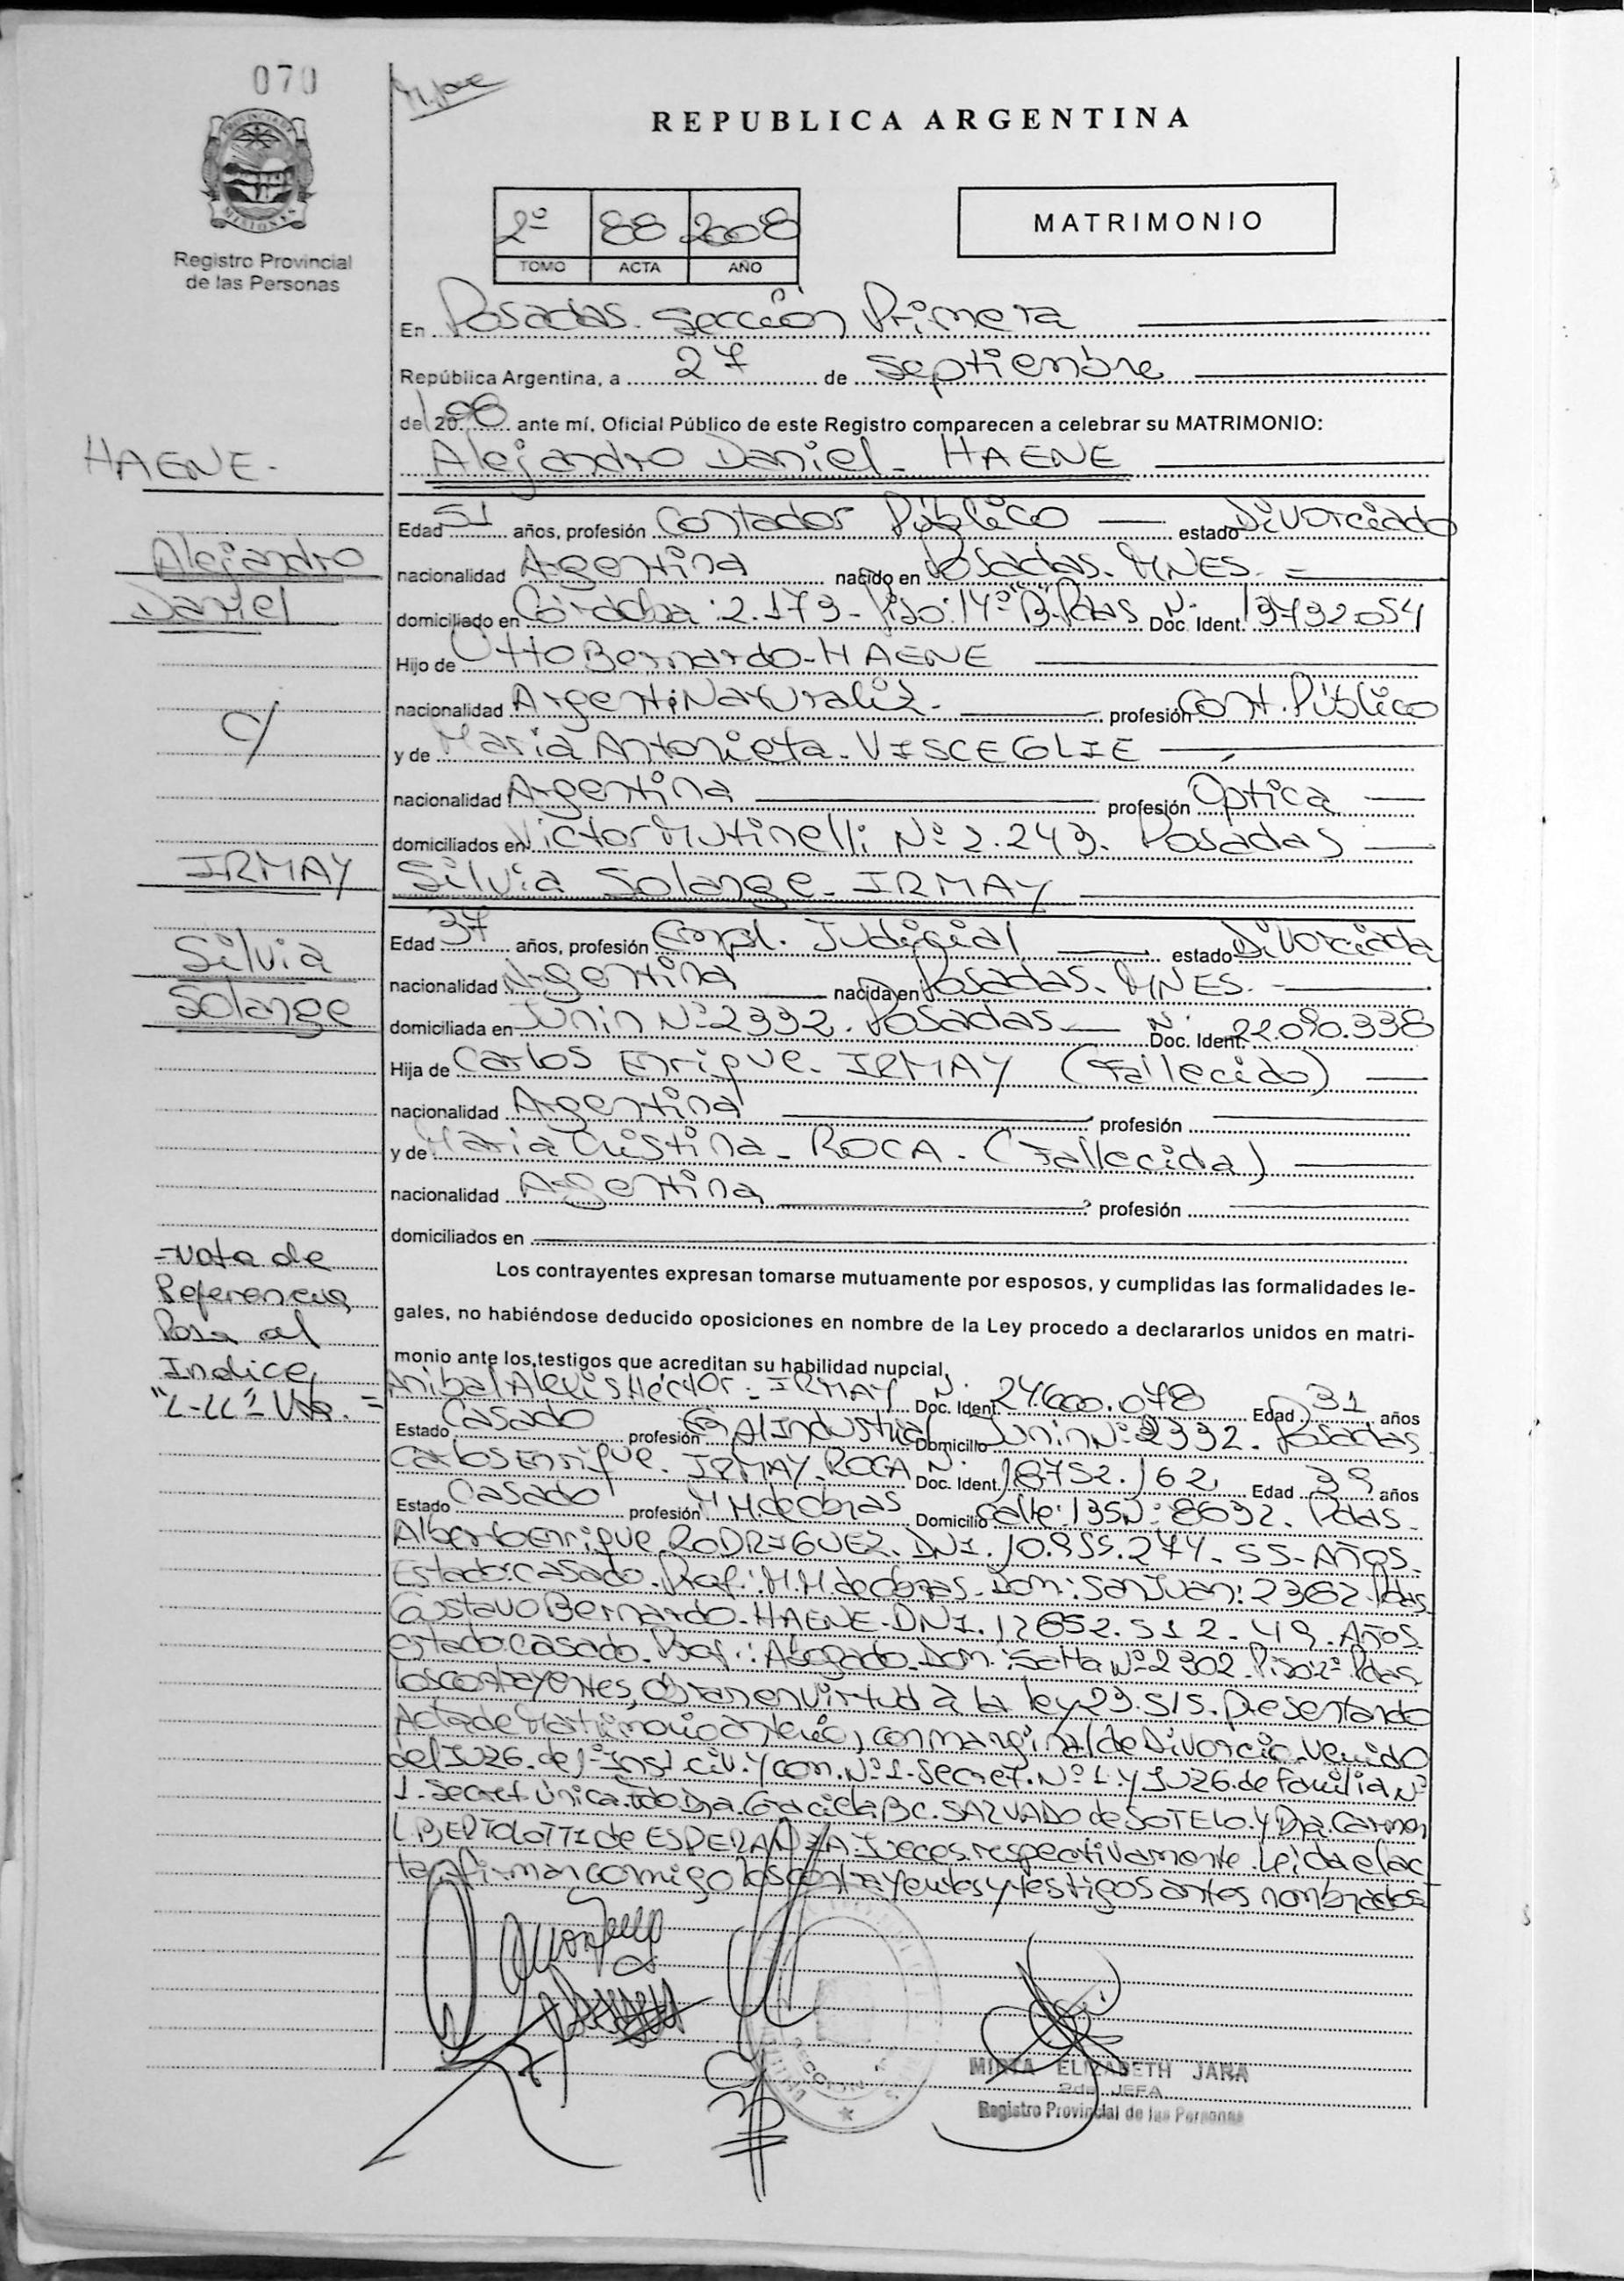 070
PROVINCIA DE
MISIONES
Registro Provincial
de las Personas
REPUBLICA ARGENTINA
2º 88 2008
TOMO ACTA AÑO
MATRIMONIO
En Posadas. Sección Primera
República Argentina, a 27 de Septiembre
de 2008 ante mí, Oficial Público de este Registro comparecen a celebrar su MATRIMONIO:
HAENE.
Alejandro Daniel. HAENE
Edad 51 años, profesión Contador Público estado Divorciado
Alejandro
nacionalidad Argentina nacido en Posadas. MNES.
Daniel
domiciliado en Córdoba: 2.179- Piso: 14º "B". Pdas Doc. Ident. Nº 13792.054
Hijo de Otto Bernardo-HAENE
nacionalidad Argenti.Naturaliz. profesión Cont. Público
c/
y de Maria Antonieta. VISCEGLIE
nacionalidad Argentina profesión Óptica
domiciliados en Victor Mutinelli Nº 2.249. Posadas
IRMAY
Silvia Solange. IRMAY
Edad 37 años, profesión Empl. Judicial estado Divorciada
Silvia
nacionalidad Argentina nacida en Posadas. MNES.
Solange
domiciliada en Junin Nº 2332. Posadas Doc. Ident. Nº 22.090.338
Hija de Carlos Enrique. IRMAY (Fallecido)
nacionalidad Argentina profesión
y de Maria Cristina. ROCA. (Fallecida)
nacionalidad Argentina profesión
domiciliados en
=Nota de
Referencia
Pasa al
Indice
Los contrayentes expresan tomarse mutuamente por esposos, y cumplidas las formalidades le-
gales, no habiéndose deducido oposiciones en nombre de la Ley procedo a declararlos unidos en matri-
monio ante los testigos que acreditan su habilidad nupcial,
Anibal Alexis Héctor. IRMAY Doc. Ident. Nº 24.600.078 Edad 31 años
Estado Casado profesión Industrial Domicilio Junin Nº 2332. Posadas
Carlos Enrique. IRMAY. ROCA Doc. Ident. Nº 18752.162 Edad 39 años
Estado Casado profesión M.M.de obras Domicilio Calle: 135 Nº: 8692. Pdas.
Alberto Enrique. RODRIGUEZ. DNI. 10.955.274. 55-Años.
Estado: casado. Prof.: M.M.de obras. Dom: San Juan: 2362. Pdas.
Gustavo Bernardo. HAENE-DNI. 12852.512. 49. Años.
estado: casado. Prof.: Abogado. Dom: Salta Nº 2302. Piso: 2º Pdas.
los contrayentes, obran en virtud a la ley 23.515. Presentando
Acta de Matrimonio anterior, con marginal de Divorcio venido
del JUZG. de 1º Inst. civ. y com. Nº 1. Secret. Nº 1. y JUZG. de Familia Nº
1. Secret. Única. Fdo. Dra. Graciela B.C. SALVADO de SOTELO. y Dra. Carmen
L. BERTOLOTTI de ESPERANZA. Jueces respectivamente. Leida el ac
ta firman conmigo los contrayentes y testigos antes nombrados
MIRTA ELIZABETH JARA
2da. JEFA
Registro Provincial de las Personas